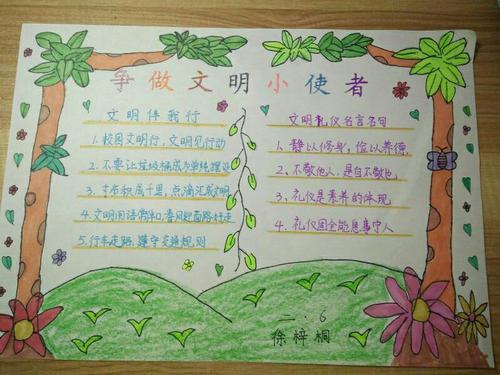 争做文明小使者
文明伴我行
1. 校园文明行，文明见行动
2. 不要让垃圾桶成为单纯摆设
3. 寸步积成千里，点滴汇成文明
4. 文明用语常伴口，春风迎面路好走
5. 行车走路，遵守交通规则
文明礼仪名言名句
1. 静以修身，俭以养德。
2. 不敬他人，是自不敬也。
3. 礼仪是素养的体现
4. 礼仪周全能息事宁人
二.6
徐梓桐